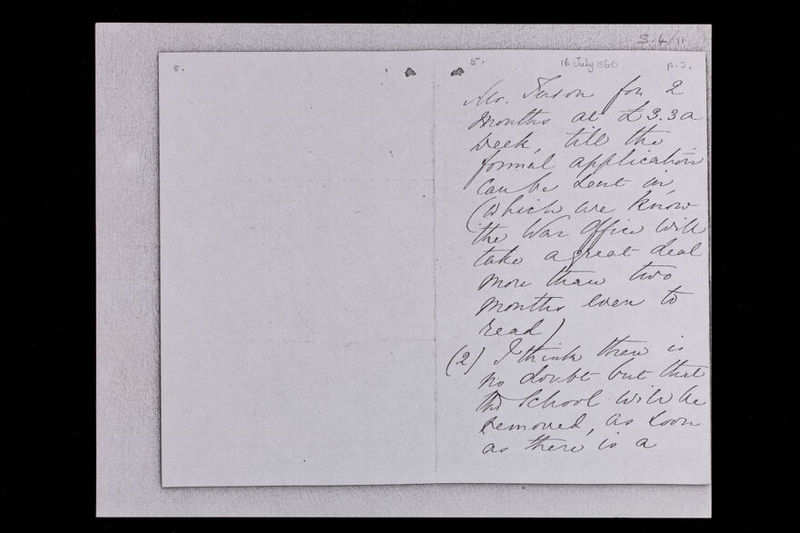 S.4/11
8.
5.
16 July 1860
p.2.
for 2
months at £3.3 a
week, till the
formal application
can be sent in,
(which we know
the War Office will
take a great deal
more than two
months even to
read)
(2) I think there is
no doubt but that
the School will be
removed, as soon
as there is a